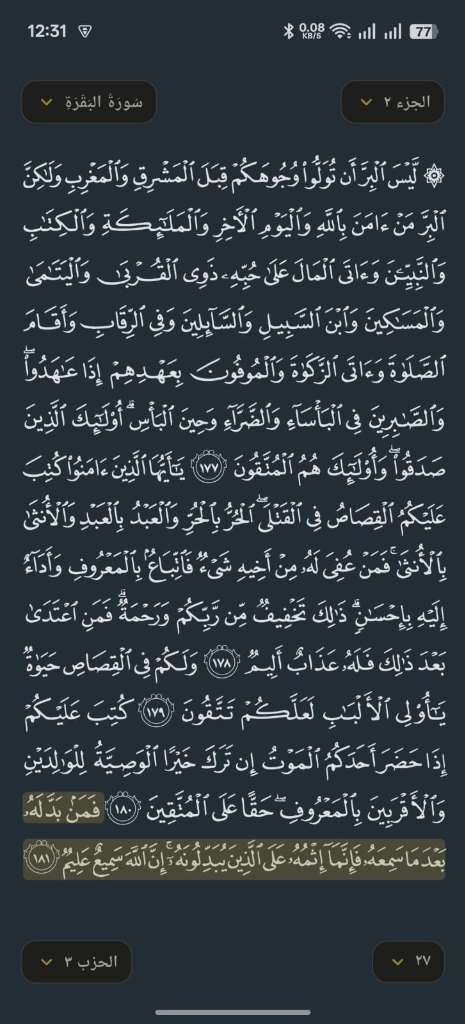 12:31
0.08 KB/S
77
الجزء ٢
سُورَةُ البَقَرَةِ
۞ لَّيْسَ ٱلْبِرَّ أَن تُوَلُّوا۟ وُجُوهَكُمْ قِبَلَ ٱلْمَشْرِقِ وَٱلْمَغْرِبِ وَلَٰكِنَّ
ٱلْبِرَّ مَنْ ءَامَنَ بِٱللَّهِ وَٱلْيَوْمِ ٱلْءَاخِرِ وَٱلْمَلَٰٓئِكَةِ وَٱلْكِتَٰبِ
وَٱلنَّبِيِّـۧنَ وَءَاتَى ٱلْمَالَ عَلَىٰ حُبِّهِۦ ذَوِى ٱلْقُرْبَىٰ وَٱلْيَتَٰمَىٰ
وَٱلْمَسَٰكِينَ وَٱبْنَ ٱلسَّبِيلِ وَٱلسَّآئِلِينَ وَفِى ٱلرِّقَابِ وَأَقَامَ
ٱلصَّلَوٰةَ وَءَاتَى ٱلزَّكَوٰةَ وَٱلْمُوفُونَ بِعَهْدِهِمْ إِذَا عَٰهَدُوا۟ ۖ
وَٱلصَّٰبِرِينَ فِى ٱلْبَأْسَآءِ وَٱلضَّرَّآءِ وَحِينَ ٱلْبَأْسِ ۗ أُو۟لَٰٓئِكَ ٱلَّذِينَ
صَدَقُوا۟ ۖ وَأُو۟لَٰٓئِكَ هُمُ ٱلْمُتَّقُونَ ١٧٧ يَٰٓأَيُّهَا ٱلَّذِينَ ءَامَنُوا۟ كُتِبَ
عَلَيْكُمُ ٱلْقِصَاصُ فِى ٱلْقَتْلَى ۖ ٱلْحُرُّ بِٱلْحُرِّ وَٱلْعَبْدُ بِٱلْعَبْدِ وَٱلْأُنثَىٰ
بِٱلْأُنثَىٰ ۚ فَمَنْ عُفِىَ لَهُۥ مِنْ أَخِيهِ شَىْءٌ فَٱتِّبَاعٌۢ بِٱلْمَعْرُوفِ وَأَدَآءٌ
إِلَيْهِ بِإِحْسَٰنٍ ۗ ذَٰلِكَ تَخْفِيفٌ مِّن رَّبِّكُمْ وَرَحْمَةٌ ۗ فَمَنِ ٱعْتَدَىٰ
بَعْدَ ذَٰلِكَ فَلَهُۥ عَذَابٌ أَلِيمٌ ١٧٨ وَلَكُمْ فِى ٱلْقِصَاصِ حَيَوٰةٌ
يَٰٓأُو۟لِى ٱلْأَلْبَٰبِ لَعَلَّكُمْ تَتَّقُونَ ١٧٩ كُتِبَ عَلَيْكُمْ
إِذَا حَضَرَ أَحَدَكُمُ ٱلْمَوْتُ إِن تَرَكَ خَيْرًا ٱلْوَصِيَّةُ لِلْوَٰلِدَيْنِ
وَٱلْأَقْرَبِينَ بِٱلْمَعْرُوفِ ۖ حَقًّا عَلَى ٱلْمُتَّقِينَ ١٨٠ فَمَنۢ بَدَّلَهُۥ
بَعْدَ مَا سَمِعَهُۥ فَإِنَّمَآ إِثْمُهُۥ عَلَى ٱلَّذِينَ يُبَدِّلُونَهُۥٓ ۚ إِنَّ ٱللَّهَ سَمِيعٌ عَلِيمٌ ١٨١
٢٧
الحزب ٣